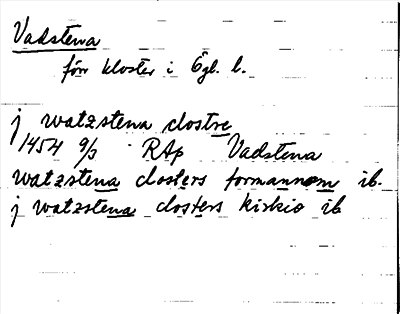 Vadstena
förr kloster i Ögl. l.
j watzstena clostre
1454 9/3 RAp Vadstena
watzstena closters formannom ib.
j watzstena closters kirkio ib